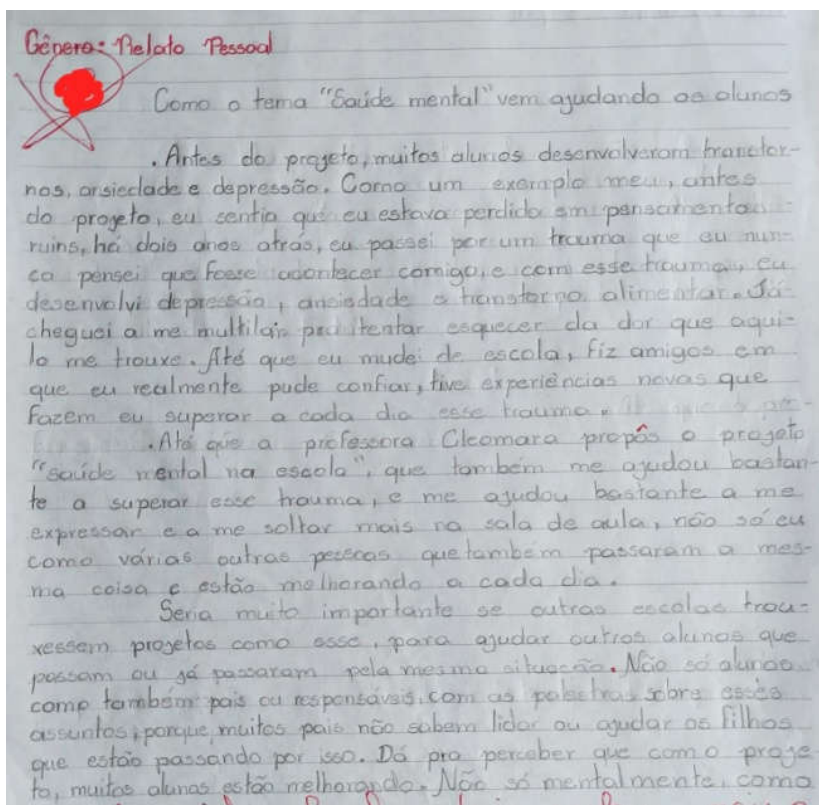 Gênero: Relato Pessoal
Como o tema "Saúde mental" vem ajudando os alunos
. Antes do projeto, muitos alunos desenvolveram transtor-
nos, ansiedade e depressão. Como um exemplo meu, antes
do projeto, eu sentia que eu estava perdido em pensamentos
ruins, há dois anos atrás, eu passei por um trauma que eu nun-
ca pensei que fosse acontecer comigo, e com esse trauma, eu
desenvolvi depressão, ansiedade e transtorno alimentar. Já
cheguei a me multilar pra tentar esquecer da dor que aqui-
lo me trouxe. Até que eu mudei de escola, fiz amigos em
que eu realmente pude confiar, tive experiências novas que
fazem eu superar a cada dia esse trauma.
. Até que a professora Cleomara propôs o projeto
"saúde mental na escola", que também me ajudou bastan-
te a superar esse trauma, e me ajudou bastante a me
expressar e a me soltar mais na sala de aula, não só eu
como várias outras pessoas que também passaram a mes-
ma coisa e estão melhorando a cada dia.
Seria muito importante se outras escolas trou-
xessem projetos como esse, para ajudar outros alunos que
possam ou já passaram pela mesma situação. Não só alunos
como também pais ou responsáveis, com as palestras sobre esses
assuntos, porque muitos pais não sabem lidar ou ajudar os filhos
que estão passando por isso. Dá pra perceber que com o proje
to, muitos alunos estão melhorando. Não só mentalmente, como